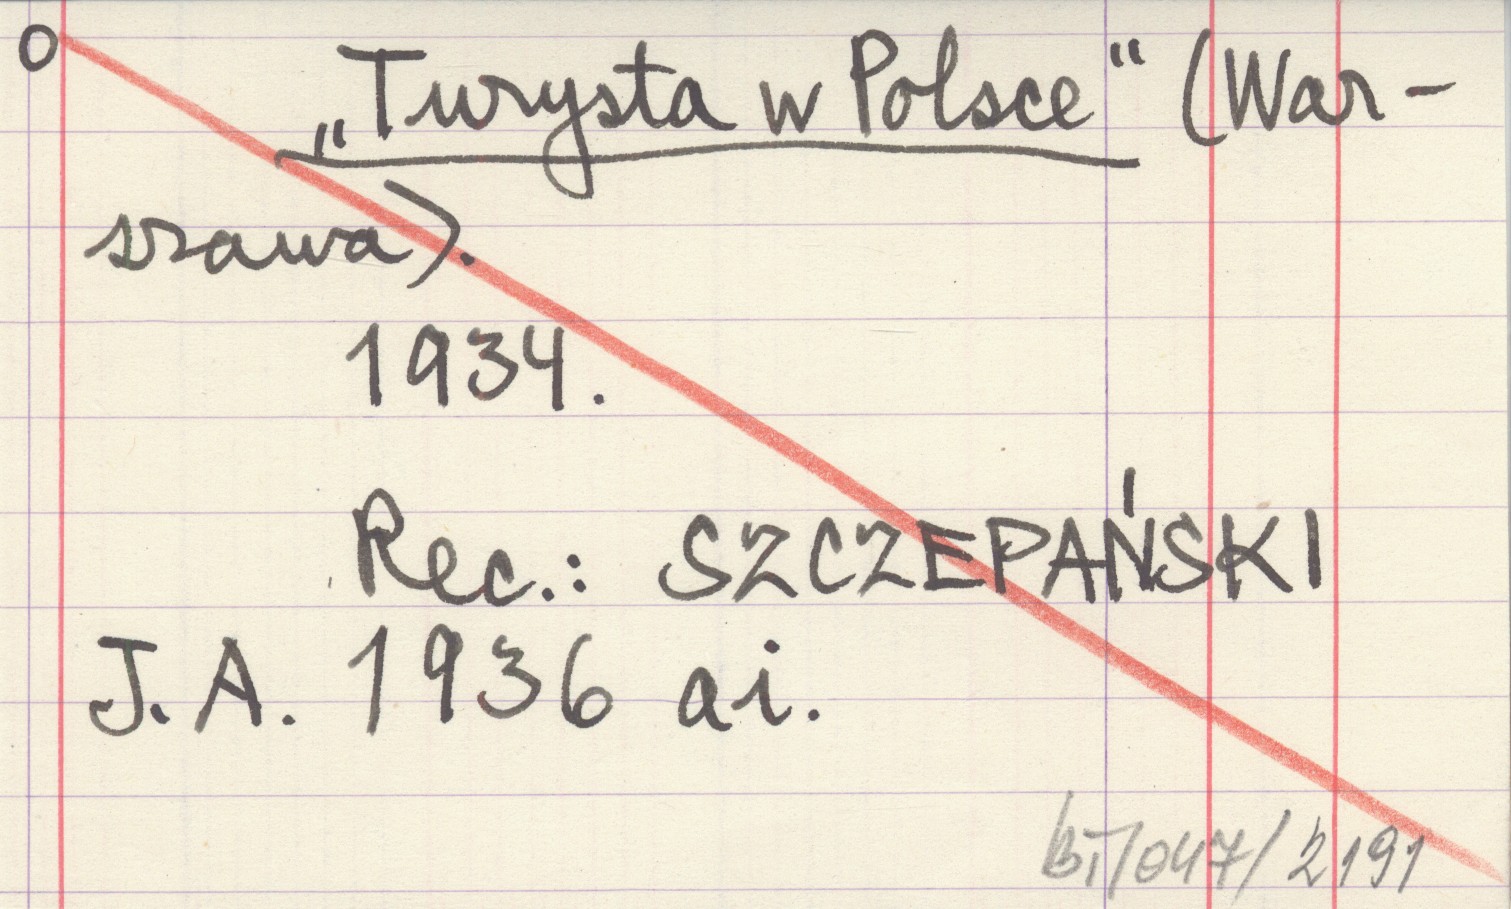 O
„Turysta w Polsce“ (War-
szawa).
1934.
Rec.: SZCZEPAŃSKI
J. A. 1936 ai.
bi/047/2191